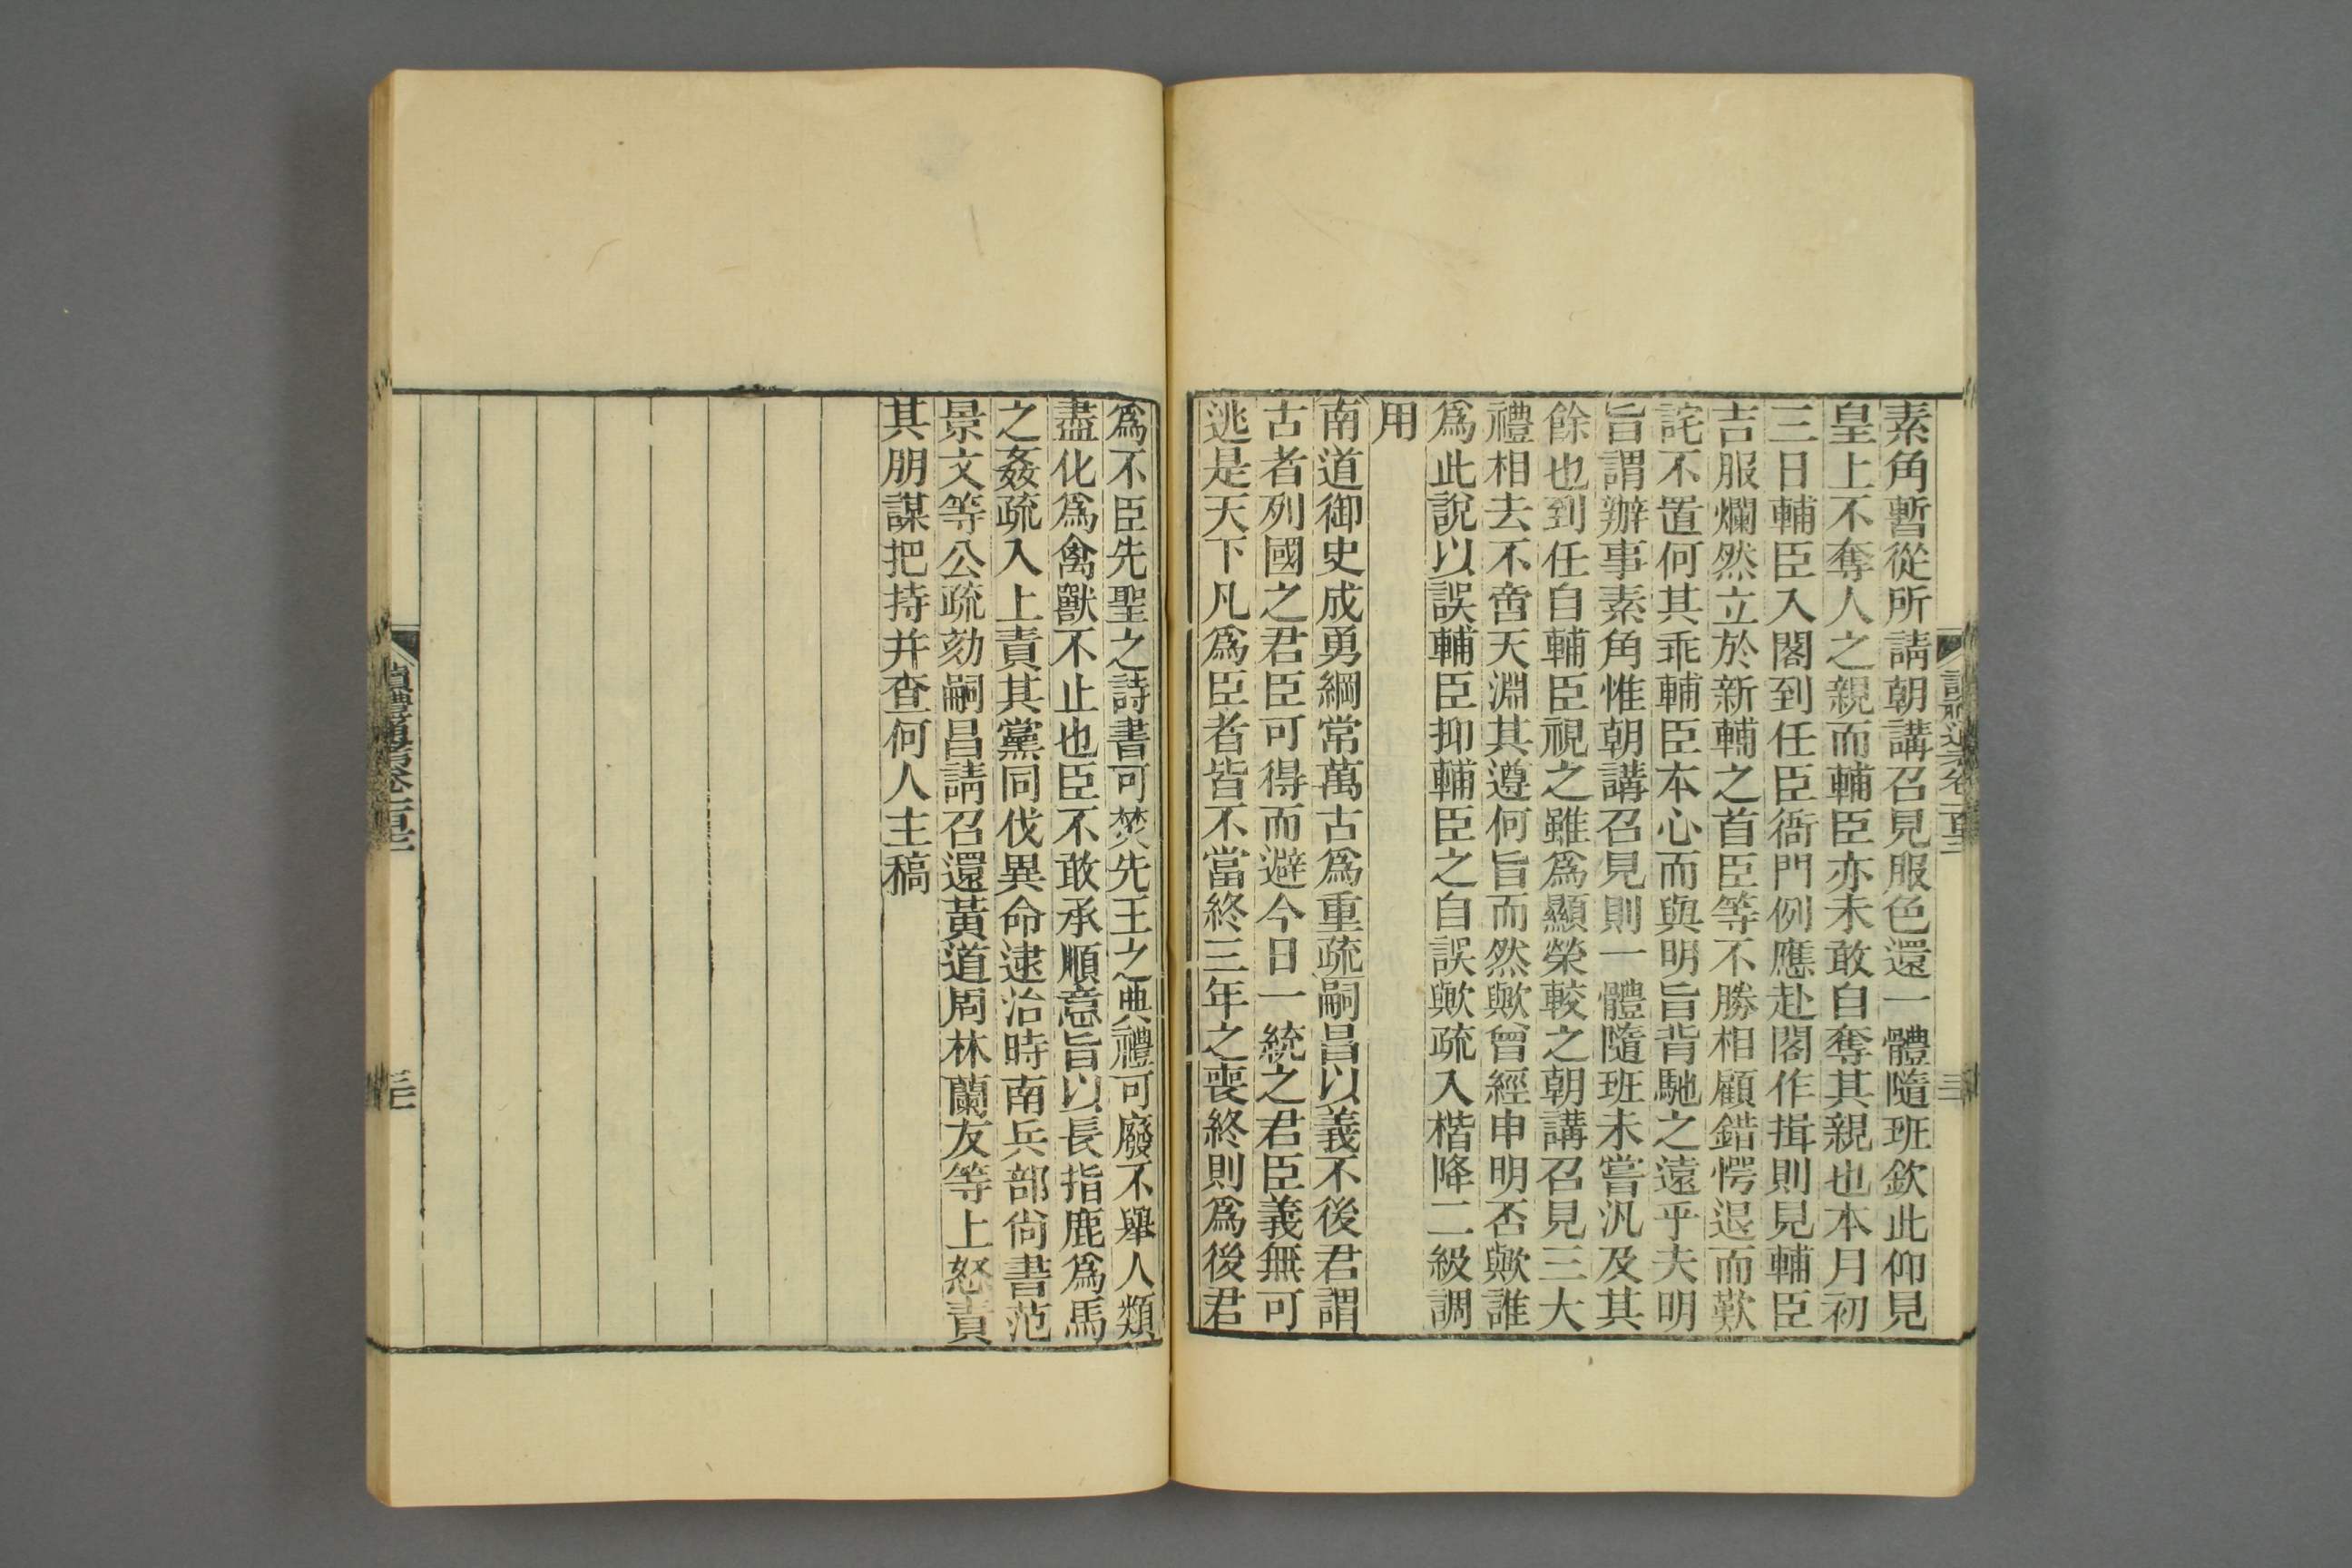 素角暫從所請朝講召見服色還一體隨班欽此仰見
皇上不奪人之親而輔臣亦未敢自奪其親也本月初
三日輔臣入閣到任臣衙門例應赴閣作揖則見輔臣
吉服爛然立於新輔之首臣等不勝相顧錯愕退而歎
詫不置何其乖輔臣本心而與明旨背馳之遠乎夫明
旨謂辦事素角惟朝講召見則一體隨班未嘗汎及其
餘也到任自輔臣視之雖爲顯榮較之朝講召見三大
禮相去不啻天淵其遵何旨而然歟曾經申明否歟誰
爲此說以誤輔臣抑輔臣之自誤歟疏入楷降二級調
用
南道御史成勇綱常萬古爲重疏嗣昌以義不後君謂
古者列國之君臣可得而避今日一統之君臣義無可
逃是天下凡爲臣者皆不當終三年之喪終則爲後君
爲不臣先聖之詩書可焚先王之典禮可廢不舉人類
盡化爲禽獸不止也臣不敢承順意旨以長指鹿爲馬
之姦疏入上責其黨同伐異命逮治時南兵部尙書范
景文等公疏劾嗣昌請召還黃道周林蘭友等上怒責
其朋謀把持并查何人主稿